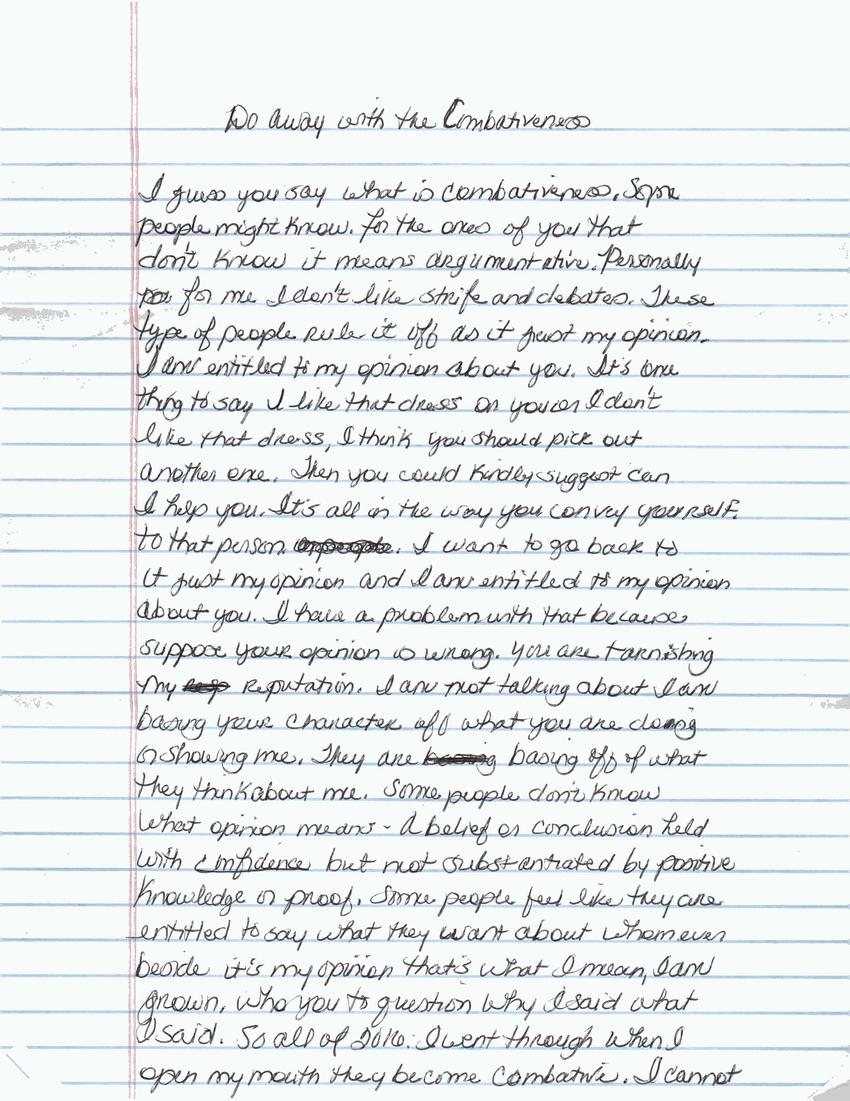 Do away with the Combativeness
I guess you say what is combativeness. Some
people might know. For the ones of you that
don't know it means argumentative. Personally
for me I don't like strife and debates. These
type of people rule it off as it just my opinion.
I am entitled to my opinion about you. It's one
thing to say I like that dress on you or I don't
like that dress, I think you should pick out
another one. Then you could kindly suggest can
I help you. It's all in the way you convey yourself.
to that person. I want to go back to
it just my opinion and I am entitled to my opinion
about you. I have a problem with that because
suppose your opinion is wrong. You are tarnishing
my reputation. I am not talking about I am
basing your character off what you are doing
or showing me. They are basing off of what
they think about me. Some people don't know
what opinion means - A belief or conclusion held
with confidence but not substantiated by positive
knowledge or proof. Some people feel like they are
entitled to say what they want about whomever
beside it's my opinion that's what I mean, I am
grown, who you to question why I said what
I said. So all of 2016 I went through when I
open my mouth they become combative. I cannot